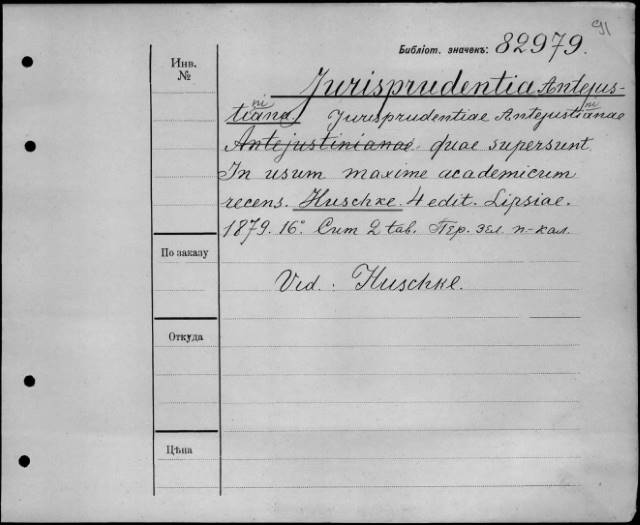 91
Библіот. значекъ: 82979.
Инв.
№
Jurisprudentia Antejus-
tiniana Jurisprudentiae Antejustinianae
Antejustinianae quae supersunt
In usum maxime academicum
recens. Huschke. 4 edit. Lipsiae.
1879. 16° Cum 2 tab. Пер. зел. п-кал.
По заказу
Vid. Huschke.
Откуда
Цѣна